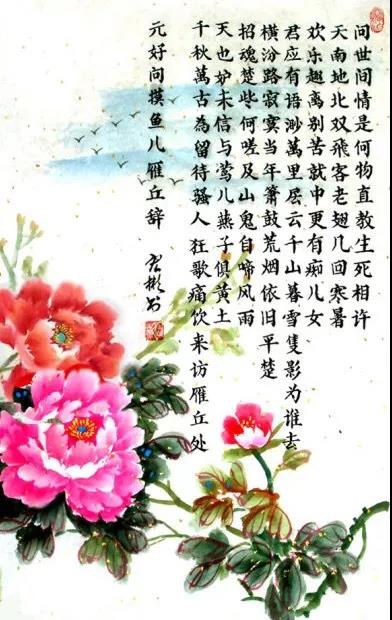 问世间情是何物直教生死相许
天南地北双飞客老翅几回寒暑
欢乐趣离别苦就中更有痴儿女
君应有语渺萬里层云千山暮雪隻影为谁去
横汾路寂寞当年箫鼓荒烟依旧平楚
招魂楚些何嗟及山鬼自啼风雨
天也妒未信与莺儿燕子俱黄土
千秋萬古為留待骚人狂歌痛饮来访雁丘处
元好问摸鱼儿雁丘辞